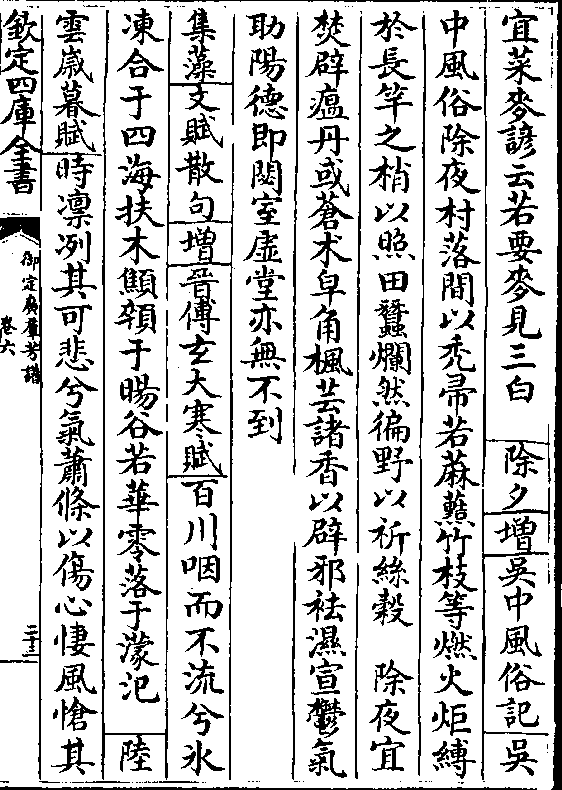 宜菜麥諺云若要麥見三白　除夕增吳中風俗記吳
中風俗除夜村落間以禿帚若蔴藍竹枝等燃火炬縛
於長竿之梢以照田蠶爛然徧野以祈絲榖　除夜宜
焚辟瘟丹或蒼朮皁角楓芸諸香以辟邪袪濕宣鬱氣
助陽德即閟室虛堂亦無不到
集藻文賦散句增晉傅玄大寒賦百川咽而不流兮氷
凍合于四海扶木顦顇于暘谷若華零落于濛汜　陸
雲歲暮賦時凛冽其可悲兮氣蕭條以傷心悽風愴其
欽定四庫全書
御定廣羣芳譜
卷六
二十三